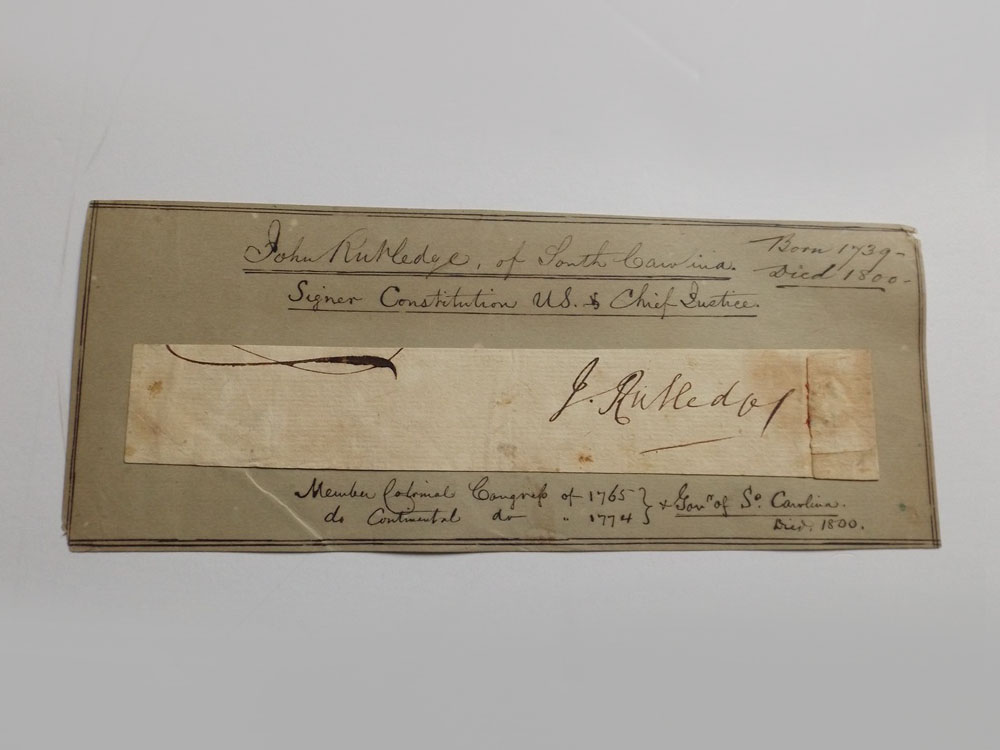 John Rutledge, of South Carolina.
Born 1739-
Died 1800-
Signer Constitution U.S. & Chief Justice.
J. Rutledge
Member Colonial Congress of 1765 } & Govr of So. Carolina.
do Continental do " 1774
Died. 1800.